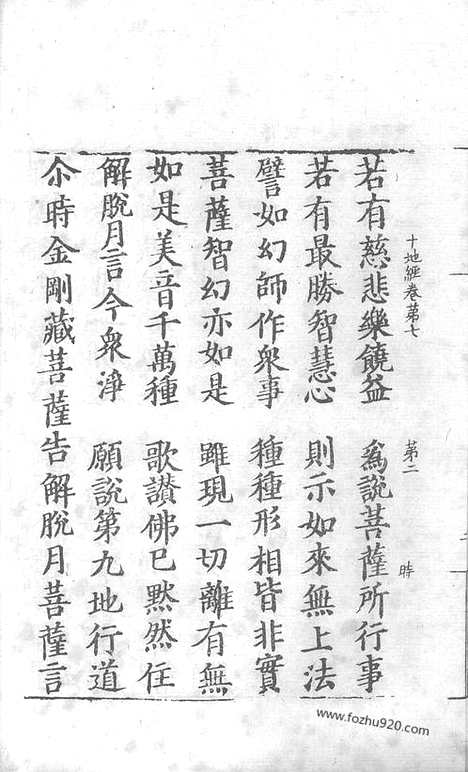 十地經卷第七 第二 時
若有慈悲樂饒益 爲說菩薩所行事
若有最勝智慧心 則示如來無上法
譬如幻師作衆事 種種形相皆非實
菩薩智幻亦如是 雖現一切離有無
如是美音千萬種 歌讃佛已黙然住
解脫月言今衆淨 願說第九地行道
尒時金剛藏菩薩告解脫月菩薩言
www.fozhu920.com